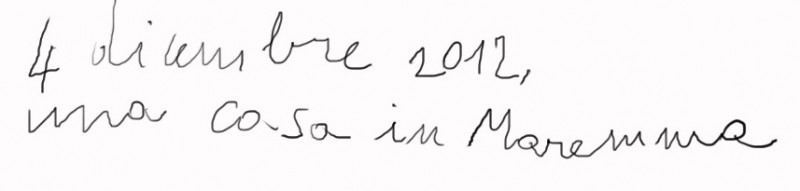 4 dicembre 2012,
una casa in Maremma